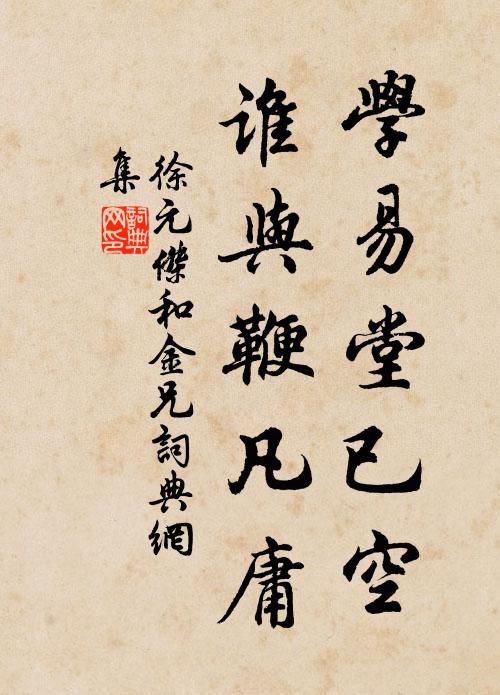 學易堂已空
誰與鞭凡庸
徐元傑和金兄詞典網
集
詞典
网印